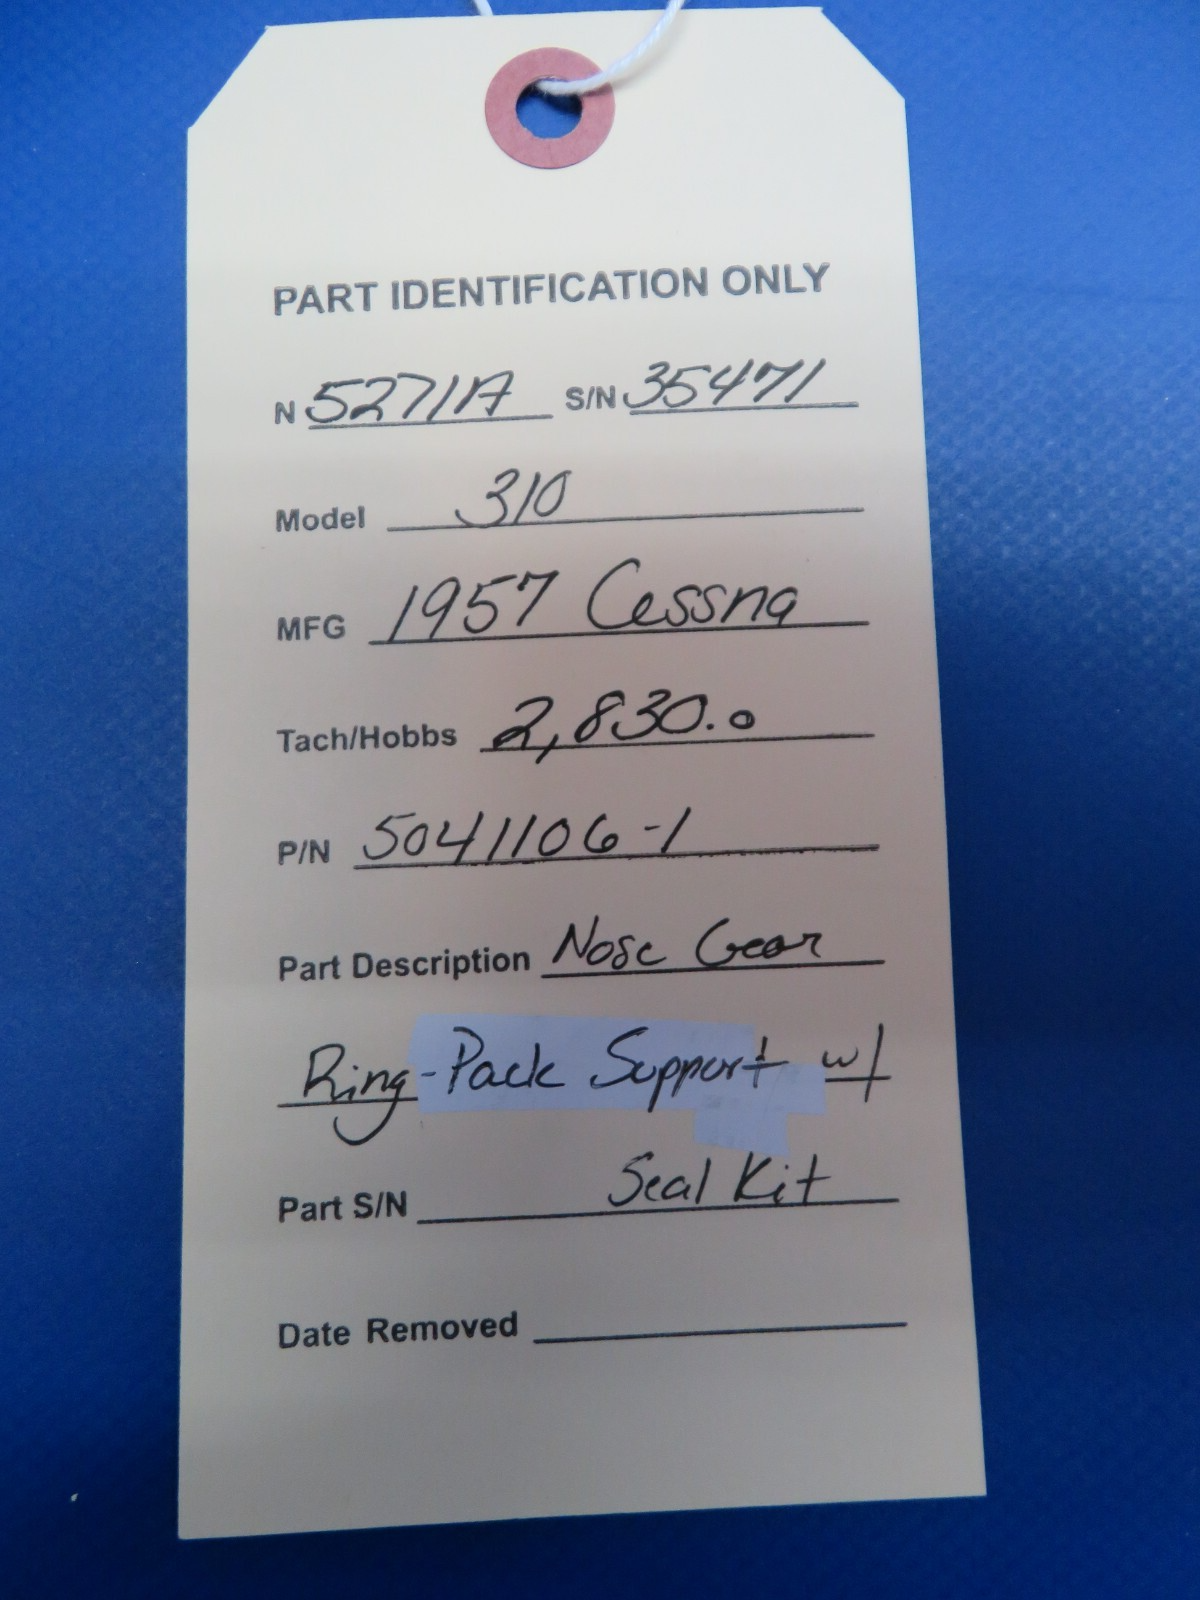 PART IDENTIFICATION ONLY
N 5271A S/N 35471
Model 310
MFG 1957 Cessna
Tach/Hobbs 2,830.0
P/N 5041106-1
Part Description Nose Gear
Ring-Pack Support w/
Seal Kit
Part S/N
Date Removed